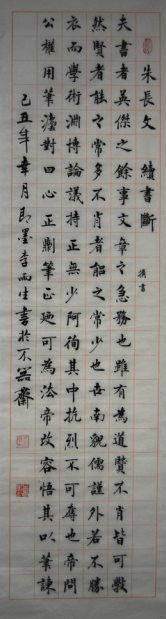 朱長文 續書斷 摘書
夫書者英傑之餘事文章之急務也雖有為道贒不肖皆可斆
然賢者能之常多不肖者能之常少也世南貌儒謹外若不勝
衣而學術淵博論議持正無少阿徇其中抗烈不可奪也帝問
公權用筆灋對曰心正則筆正廼可為法帝改容悟其以筆諫
己丑年辜月即墨李雨生書於不器齋